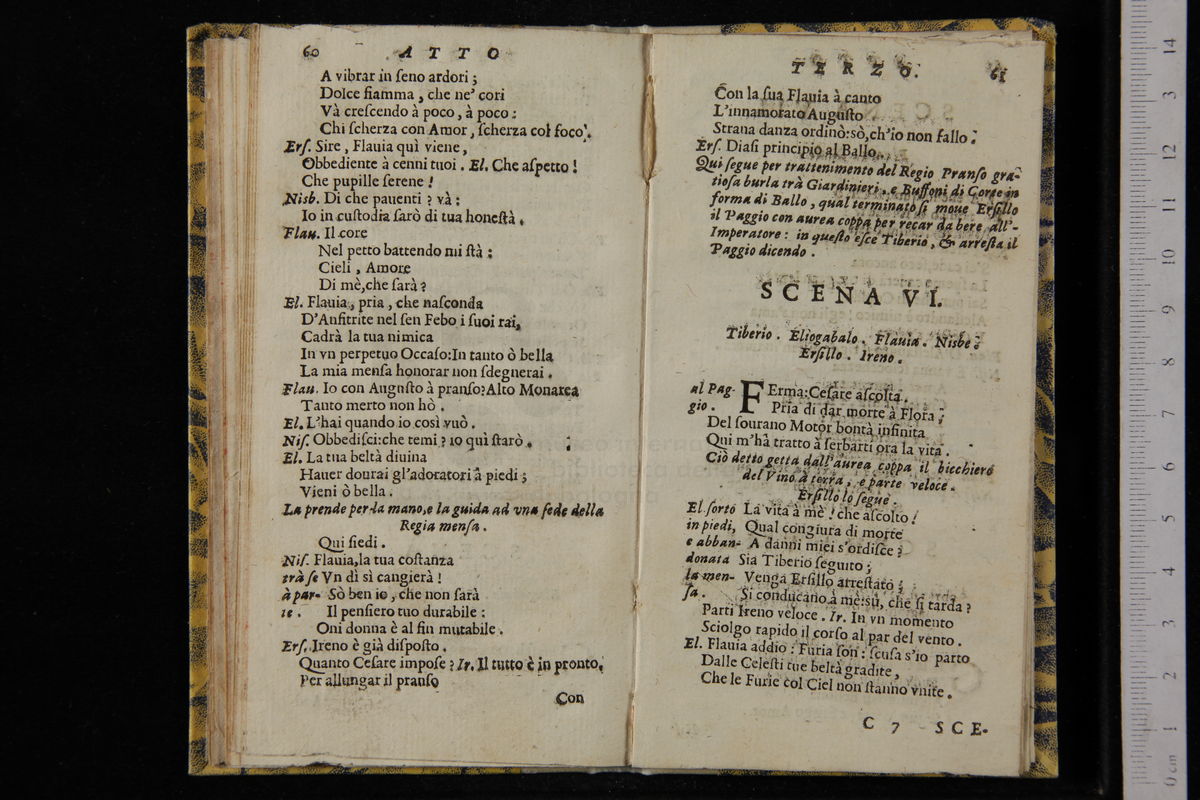 60 ATTO
A vibrar in ſeno ardori ;
Dolce fiamma , che ne' cori
Và creſcendo à poco , à poco :
Chi ſcherza con Amor , ſcherza col foco .
Erſ. Sire , Flauia quì viene ,
Obbediente à cenni tuoi . El. Che aſpetto !
Che pupille ſerene !
Nisb. Di che pauenti ? và :
Io in cuſtodia ſarò di tua honeſtà .
Flau. Il core
Nel petto battendo mi ſtà :
Cieli , Amore
Di mè,che ſarà ?
El. Flauia , pria , che naſconda
D'Anfitrite nel ſen Febo i ſuoi rai,
Cadrà la tua nimica
In vn perpetuo Occaſo:In tanto ò bella
La mia menſa honorar non ſdegnerai .
Flau. Io con Auguſto à pranſo?Alto Monarca
Tanto merto non hò .
El. L'hai quando io così vuò .
Niſ. Obbediſci:che temi ? io quì ſtarò .
El. La tua beltà diuina
Hauer dourai gl'adoratori à piedi ;
Vieni ò bella .
La prende per la mano,e la guida ad vna ſede della
Regia menſa .
Qui ſiedi .
Niſ. Flauia,la tua coſtanza
trà ſe Vn dì sì cangierà !
à par- Sò ben io , che non ſarà
te . Il penſiero tuo durabile :
Oni donna è al fin mutabile .
Erſ. Ireno è già diſpoſto .
Quanto Ceſare impoſe ? Ir. Il tutto è in pronto,
Per allungar il pranſo
Con
TERZO. 61
Con la ſua Flauia à canto
L'innamorato Auguſto
Strana danza ordinò:sò,ch'io non fallo .
Erſ. Diaſi principio al Ballo .
Qui ſegue per trattenimento del Regio Pranſo gra-
tioſa burla trà Giardinieri , e Buffoni di Corte in
forma di Ballo , qual terminato ſi moue Erſillo
il Paggio con aurea coppa per recar da bere all'-
Imperatore : in queſto eſce Tiberio , & arreſta il
Paggio dicendo .
SCENA VI.
Tiberio . Eliogabalo . Flauia . Nisbe .
Erſillo . Ireno .
al Pag- FErma:Ceſare aſcolta .
gio . Pria di dar morte à Flora ;
Del ſourano Motor bontà infinita
Qui m'hà tratto à ſerbarti ora la vita .
Ciò detto getta dall'aurea coppa il bicchiero
del Vino à terra , e parte veloce .
Erſillo lo ſegue .
El ſorto La vita à mè ! che aſcolto !
in piedi, Qual congiura di morte
e abban- A danni miei s'ordiſce ?
donata Sia Tiberio ſeguito ;
la men- Venga Erſillo arreſtato ;
ſa . Si conducano à mè:sù, che ſi tarda ?
Parti Ireno veloce . Ir. In vn momento
Sciolgo rapido il corſo al par del vento .
El. Flauia addio : Furia ſon : ſcuſa s'io parto
Dalle Celeſti tue beltà gradite ,
Che le Furie col Ciel non ſtanno vnite .
C 7 SCE-